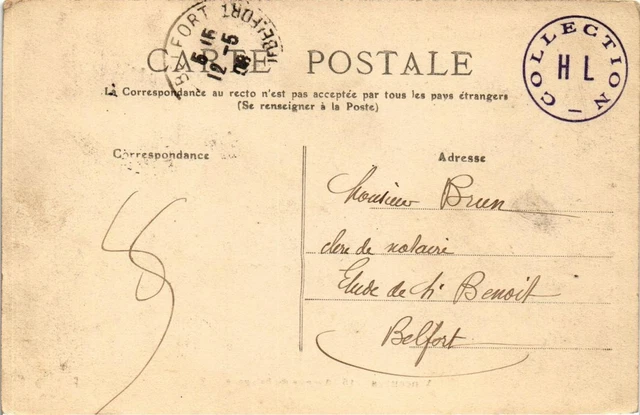 BELFORT
15
12 -5
08
BELFORT
COLLECTION
H L
CARTE POSTALE
La Correspondance au recto n'est pas acceptée par tous les pays étrangers
(Se renseigner à la Poste)
Correspondance
Adresse
Monsieur Brun
clerc de notaire
Etude de Me Benoit
Belfort